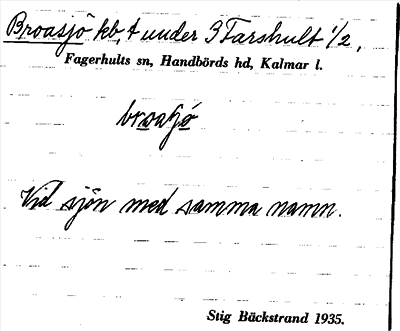 Broasjö kb, t under 3 Farshult 1/2,
Fagerhults sn, Handbörds hd, Kalmar l.
broasjö
Vid sjön med samma namn.
Stig Bäckstrand 1935.